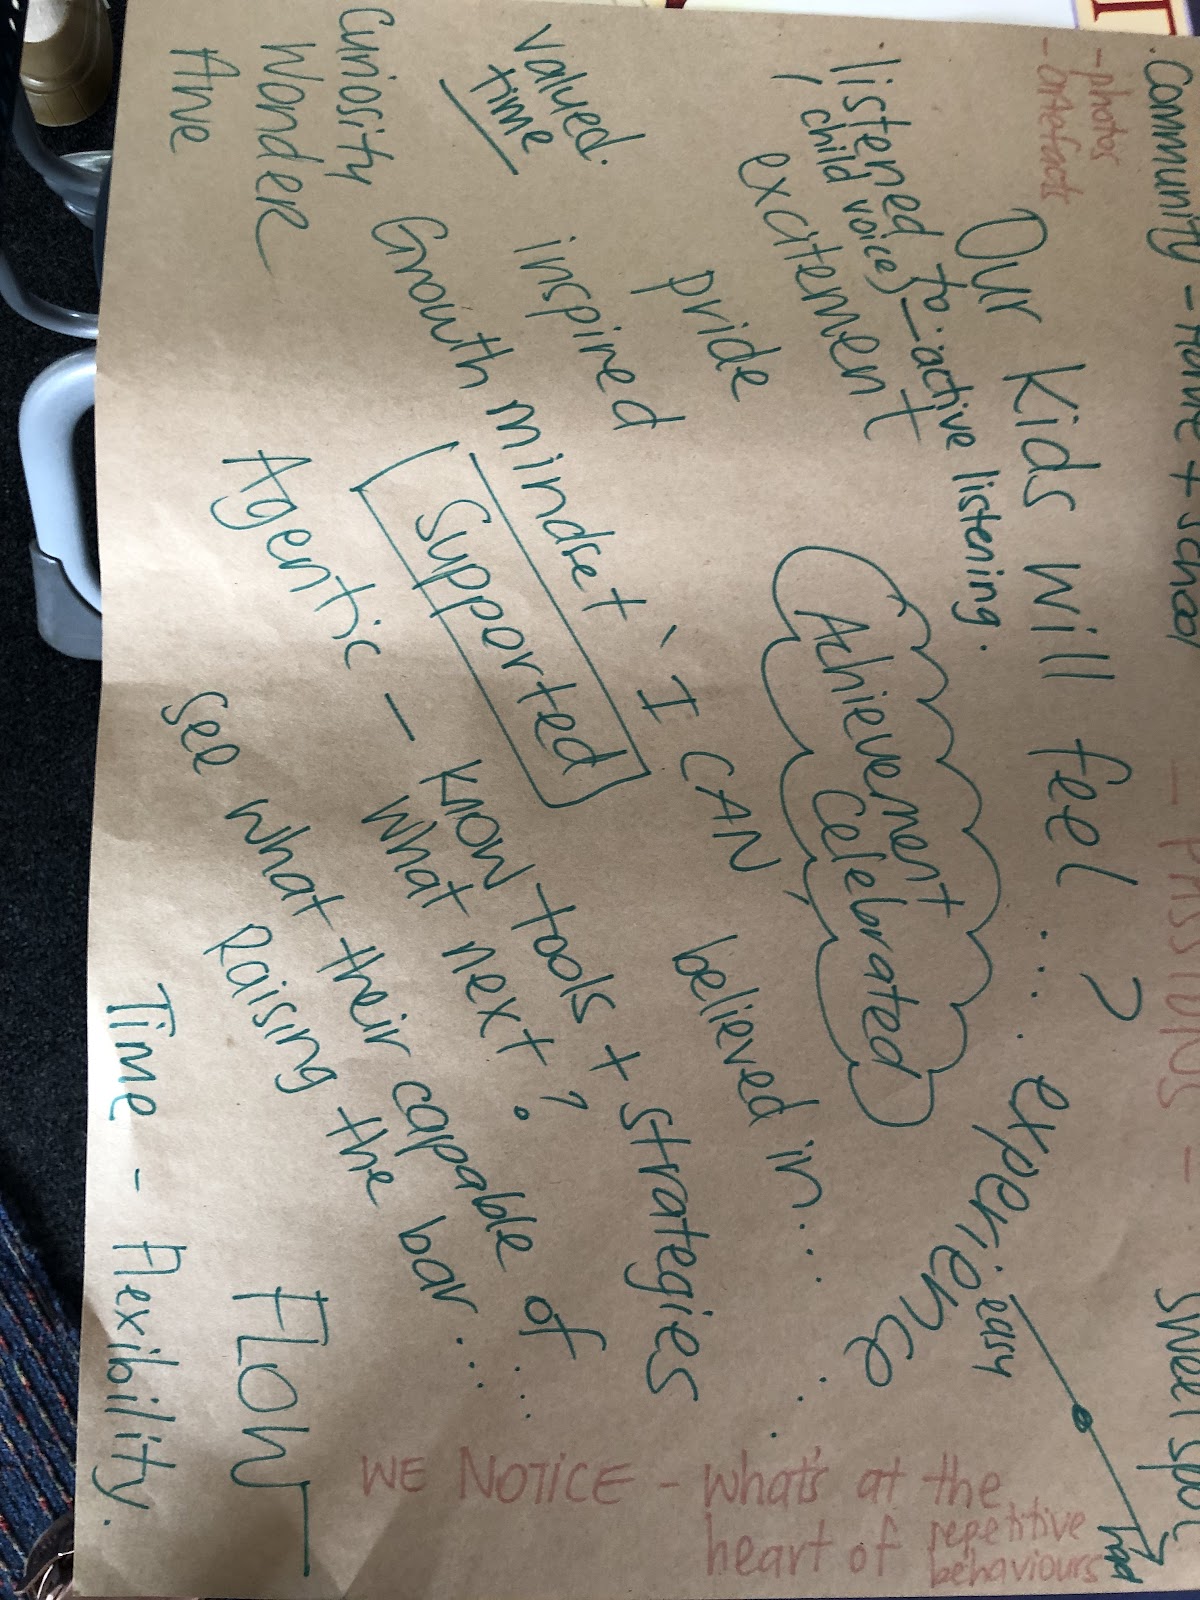 . Community - Home + school
- PASSIONS -
sweet spot
- photos
- artefacts
Our Kids Will feel ... ?
experience
easy
hard
. listened to - active listening.
( child voice)
excitement
Achievement
Celebrated
pride
believed in ...
valued.
time
inspired
Growth mindset 'I CAN'
Supported
Curiosity
Wonder
Awe
Agentic - know tools + strategies ...
What next?
See what their capable of ...
Raising the bar ...
FLOW
Time - flexibility.
WE NOTICE - what's at the
heart of repetitive
behaviours